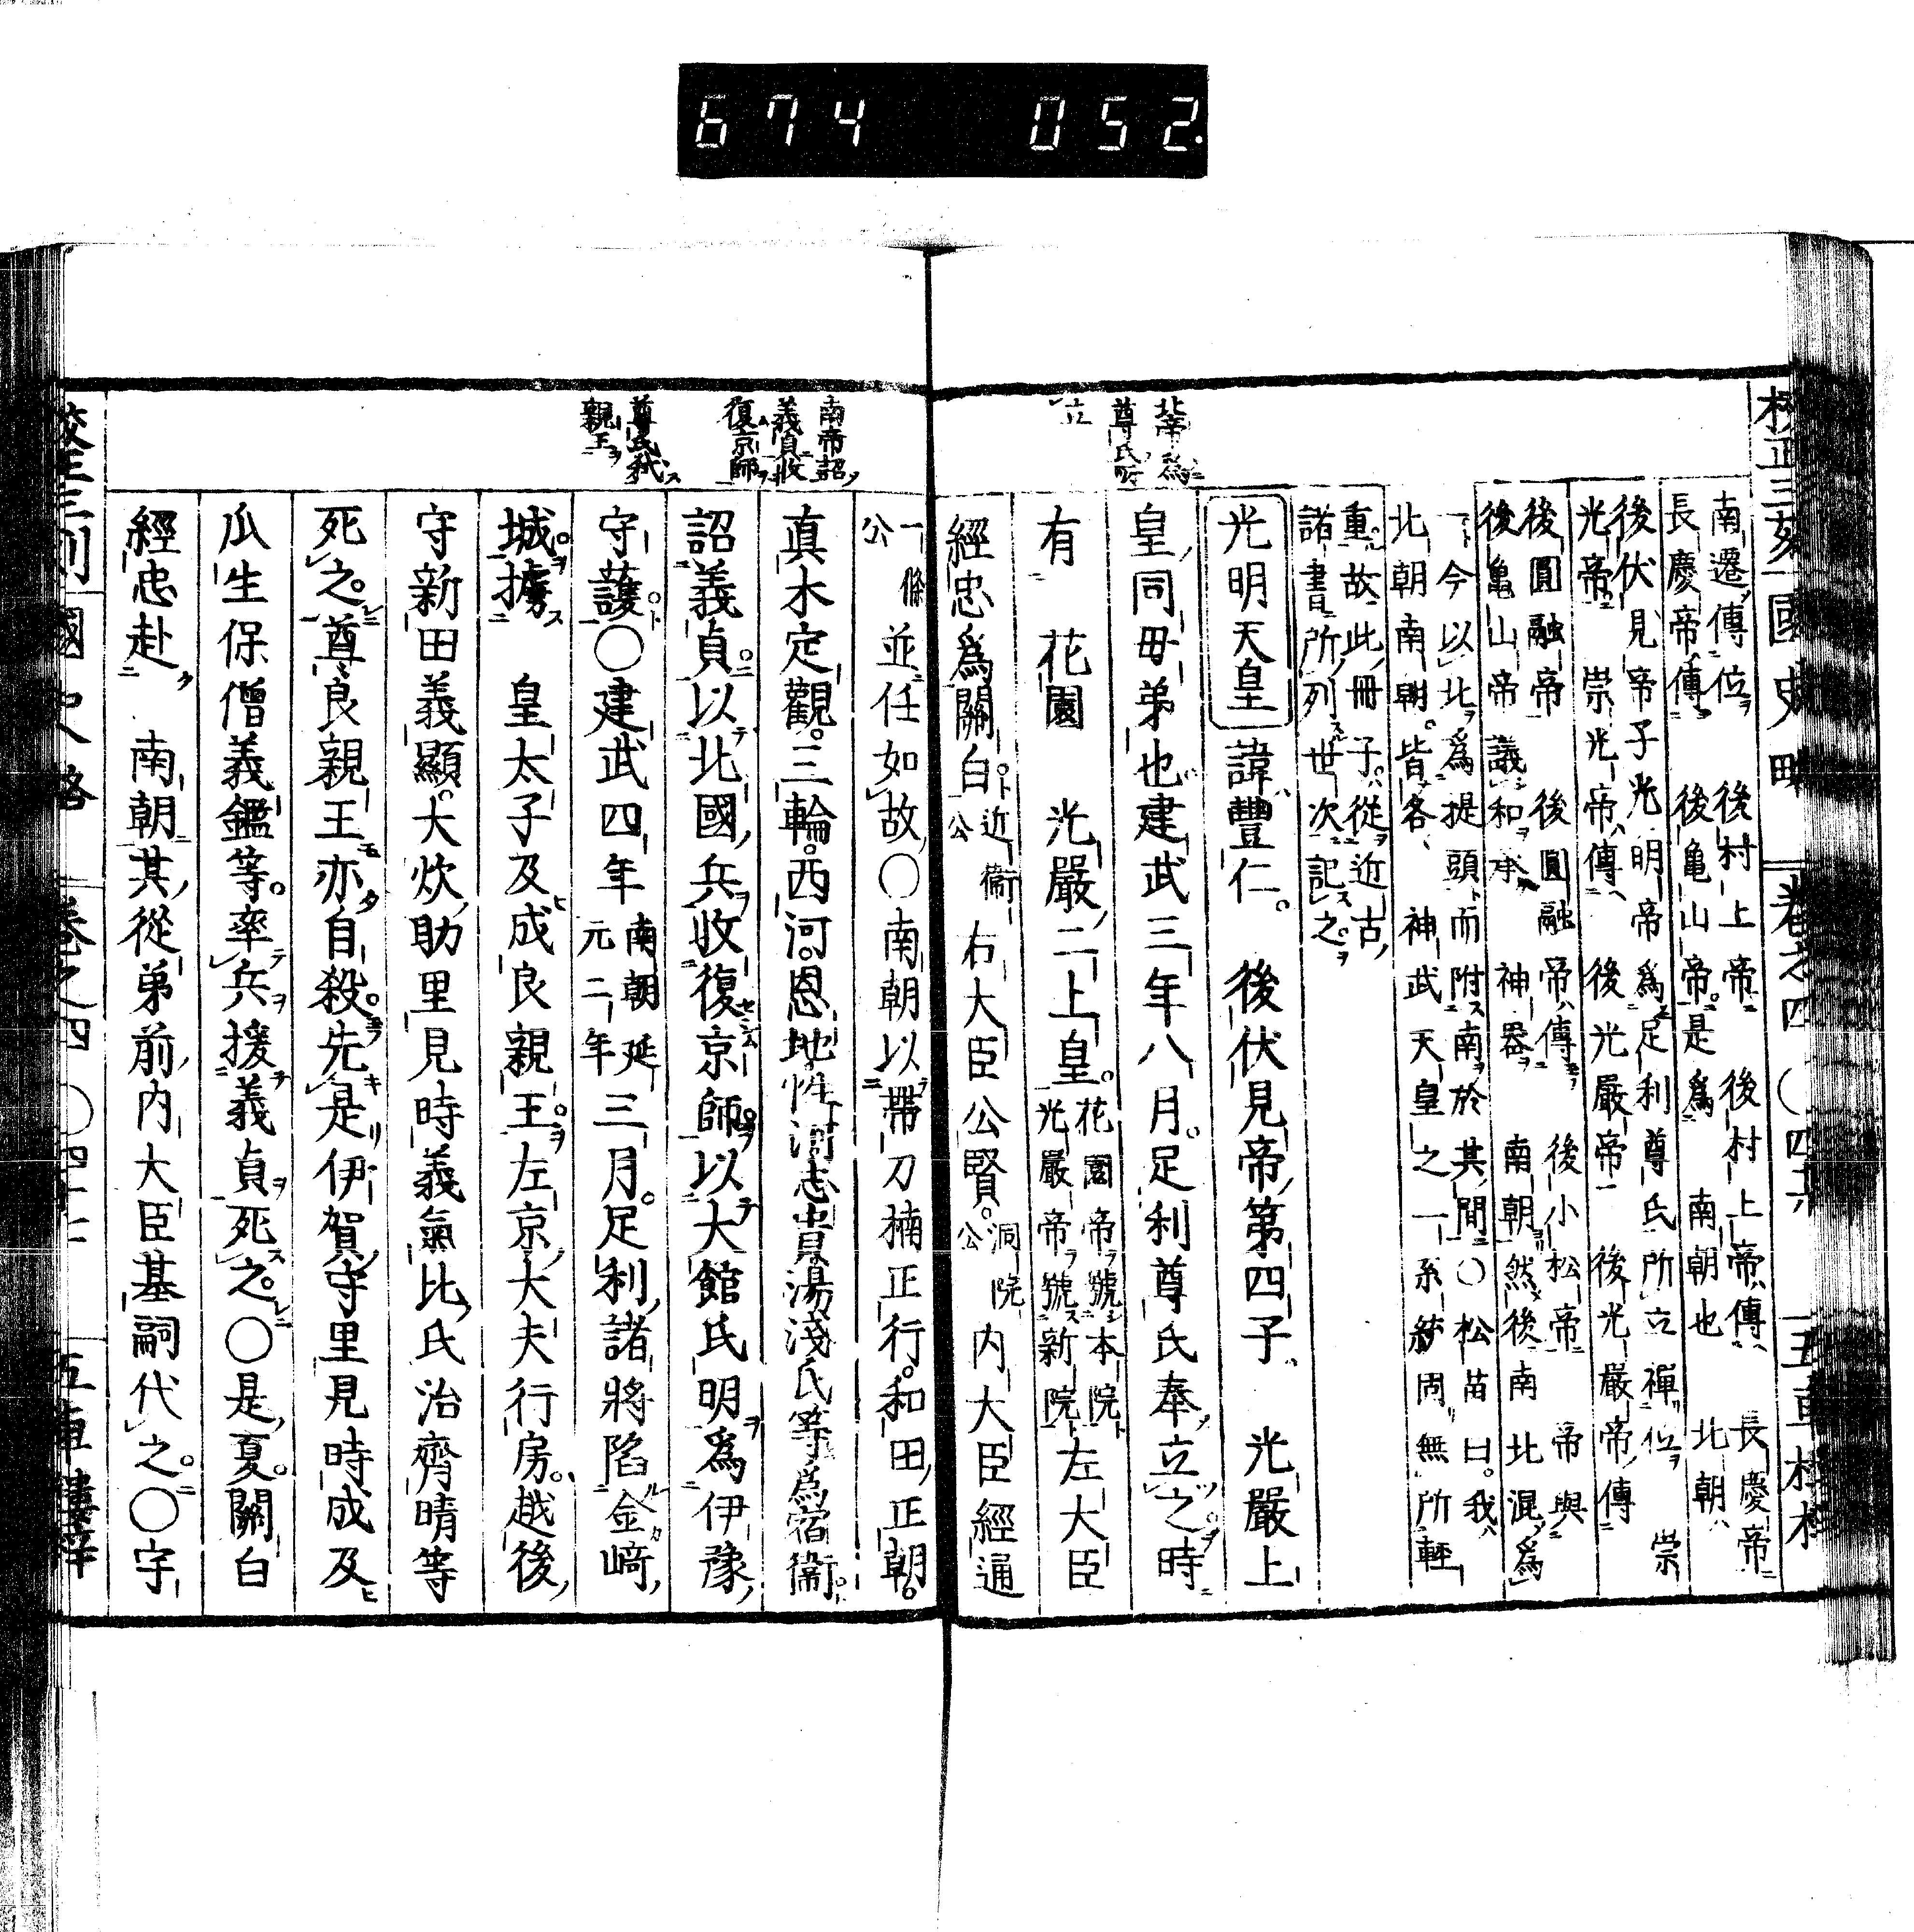 674 052.
校正三刻國史略 卷之四 ○四十六 五車樓梓
北帝爲
尊氏所
立
南遷傳位 後村上帝 後村上帝傳 長慶帝
長慶帝傳 後亀山帝是爲 南朝也 北朝
後伏見帝子光明帝爲足利尊氏所立禪位 崇
光帝 崇光帝傳 後光嚴帝 後光嚴帝傳
後圓融帝 後圓融帝傳 後小松帝 帝與
後亀山帝議和承 神器 南朝然後南北混爲
一今以北爲提頭而附南於其間○松苗曰我
北朝南朝皆各 神武天皇之一系統固無所輕
重故此冊子從近古
諸書所列世次記之
光明天皇 諱豐仁 後伏見帝第四子 光嚴上
皇同母弟也建武三年八月足利尊氏奉立之時
有 花園 光嚴二上皇 花園帝號本院 光嚴帝號新院 左大臣
經忠爲關白 近衞公 右大臣公賢 洞院公 內大臣經通
南帝詔
義貞收
復京師
尊氏弑
親王
一條公 並任如故○南朝以帶刀楠正行和田正朝
真木定觀三輪西河恩地牲川志貴湯淺氏等爲宿衞
詔義貞以北國兵收復京師以大館氏明爲伊豫
守護○建武四年 南朝延元二年 三月足利諸將陷金﨑
城擄 皇太子及成良親王左京大夫行房越後
守新田義顯大炊助里見時義氣比氏治齊晴等
死之尊良親王亦自殺先是伊賀守里見時成及
瓜生保僧義鑑等率兵援義貞死之○是夏關白
經忠赴 南朝其從弟前內大臣基嗣代之○宇
國史略 卷之四 ○四十七 五車樓梓